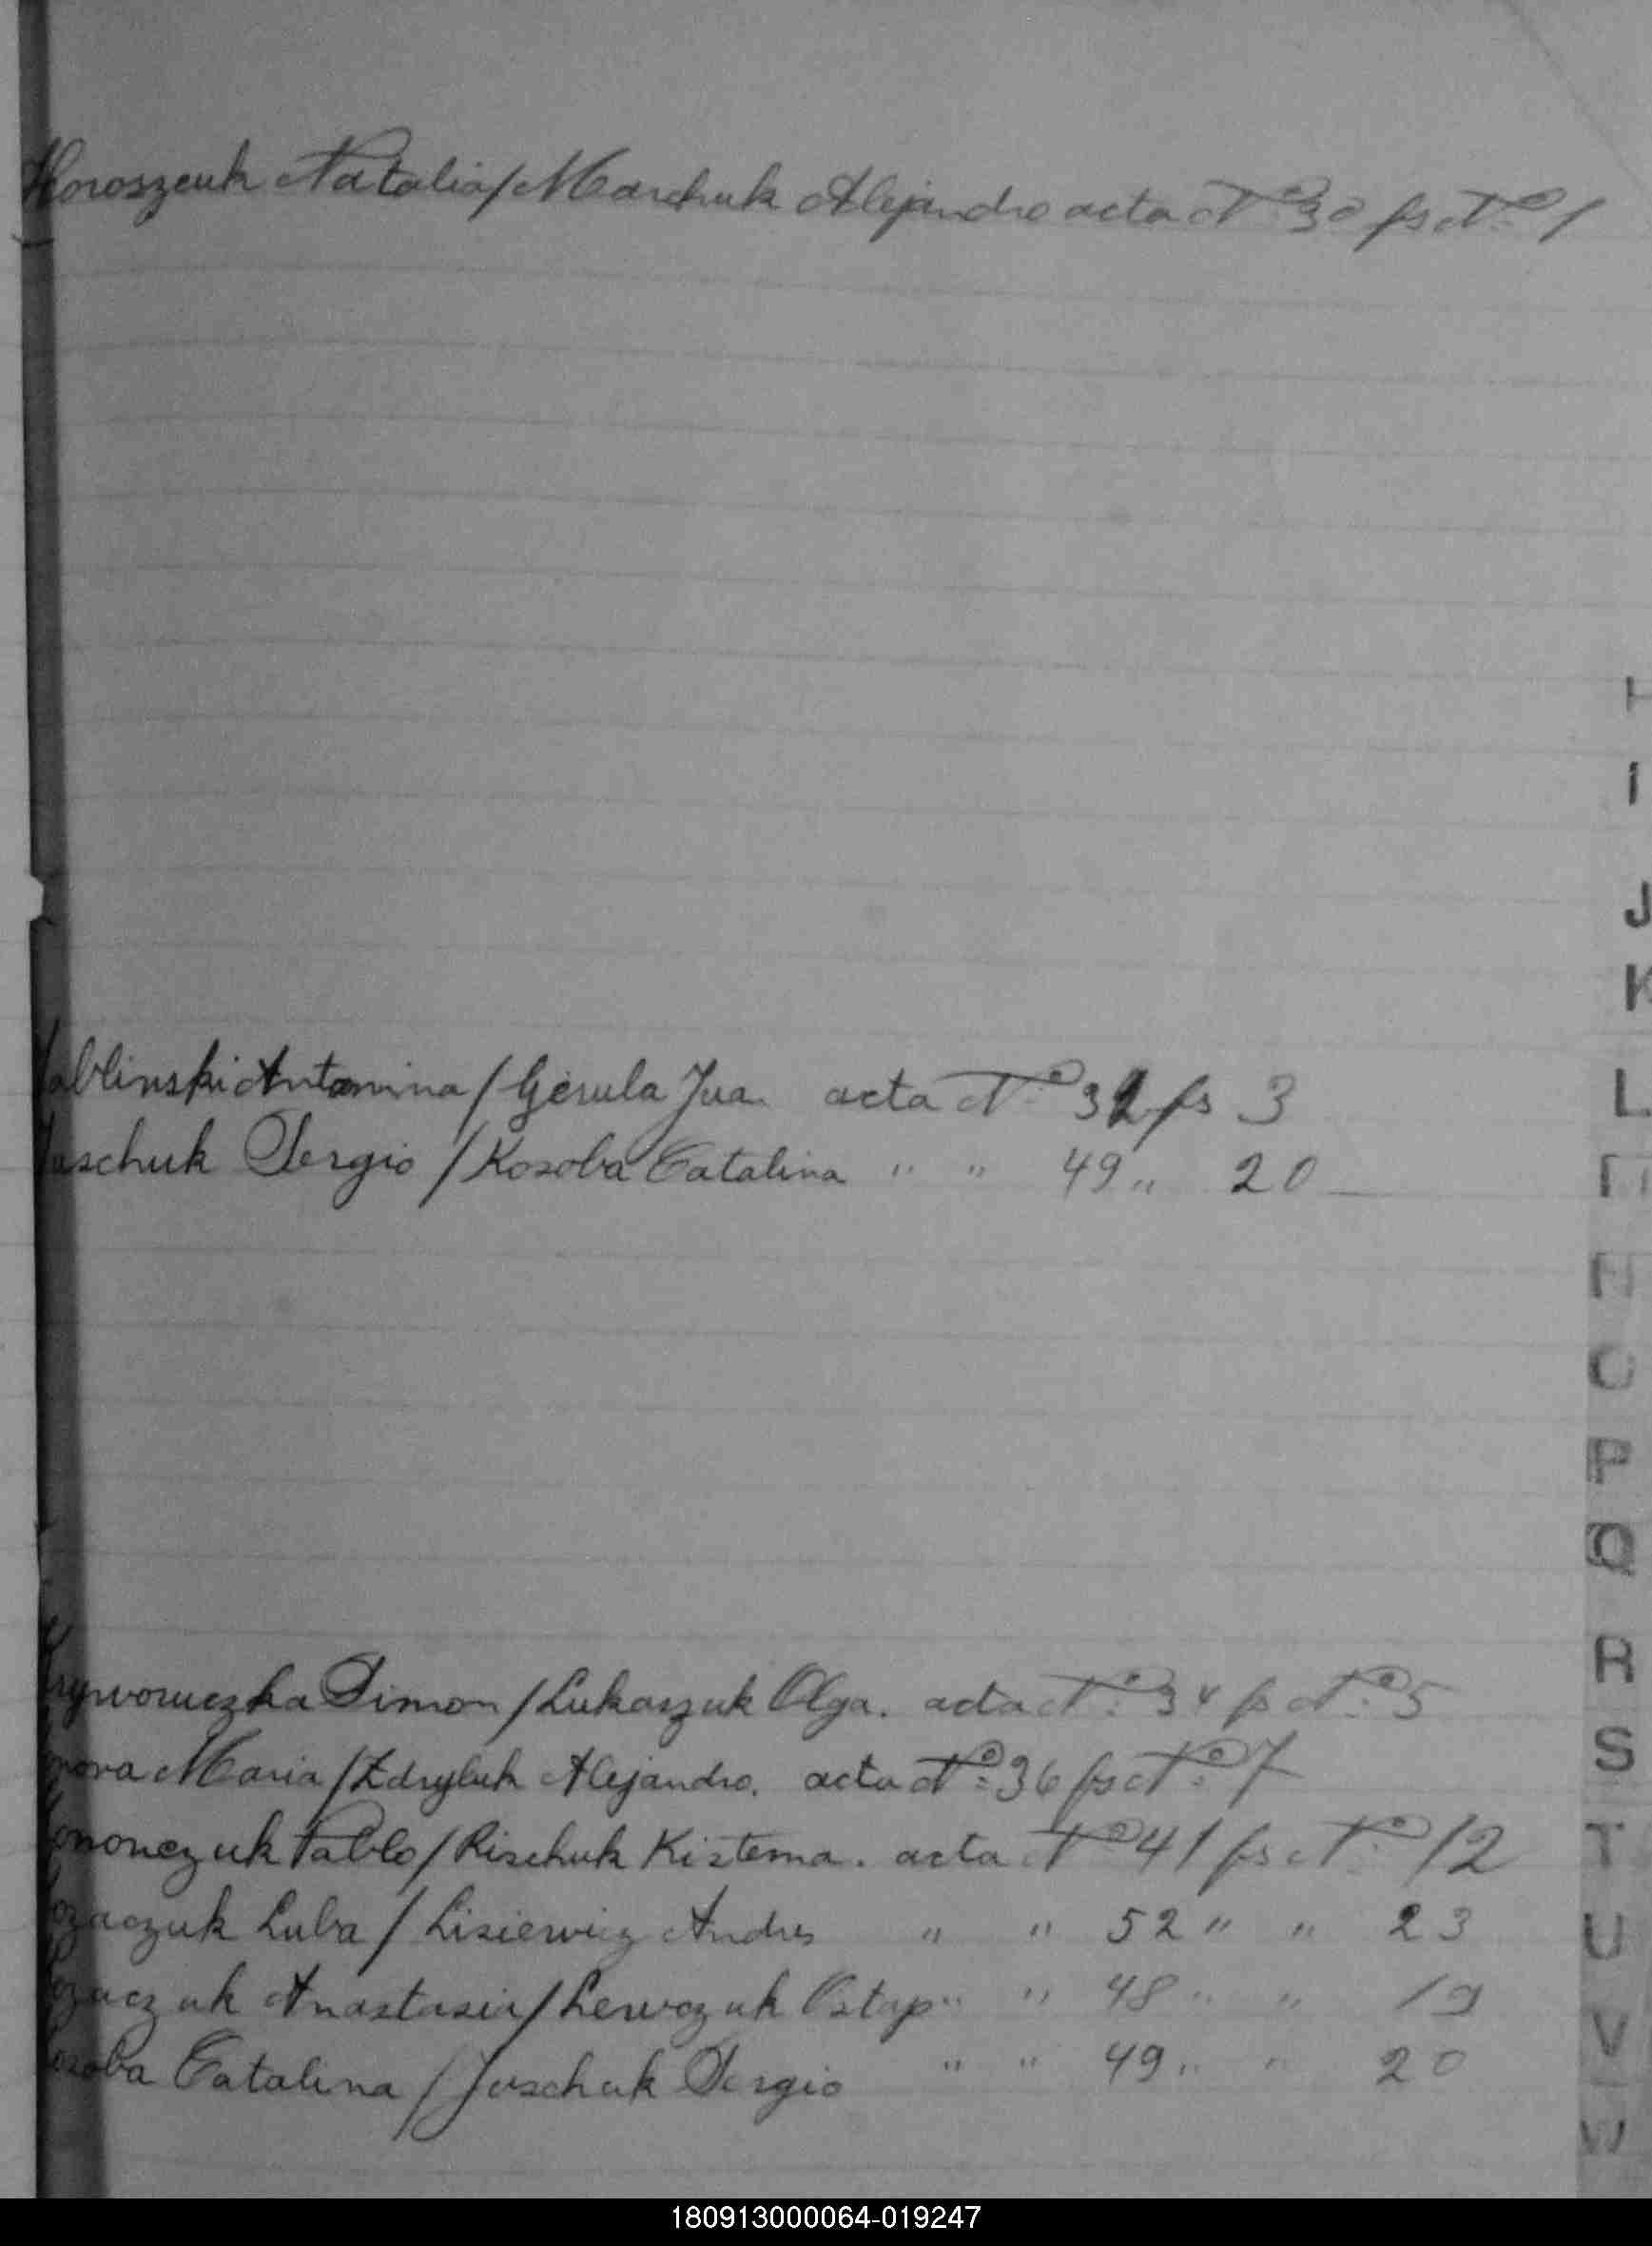 Horoszeuk Natalia/Marchuk Alejandro acta Nº 30 fs Nº 1
H
I
J
K
Jablinski Antonina/Gerula Jua. acta Nº 32 fs 3
L
Juschuk Sergio/Kosoba Catalina " " 49 " 20
N
O
P
Q
Kryworuczka Simon/Lukaszuk Olga. acta Nº 34 fs Nº 5
R
nova Maria/Zdryluk Alejandro. acta Nº 36 fs Nº 7
S
ononczuk Pablo/Rischuk Kistema. acta Nº 41 fs Nº 12
T
ozaczuk Luba/Lisiewicz Andres " " 52 " " 23
U
ozaczuk Anastasia/Lewczuk Ostap " " 48 " " 19
V
osoba Catalina/Juschuk Sergio " " 49 " " 20
W
180913000064-019247